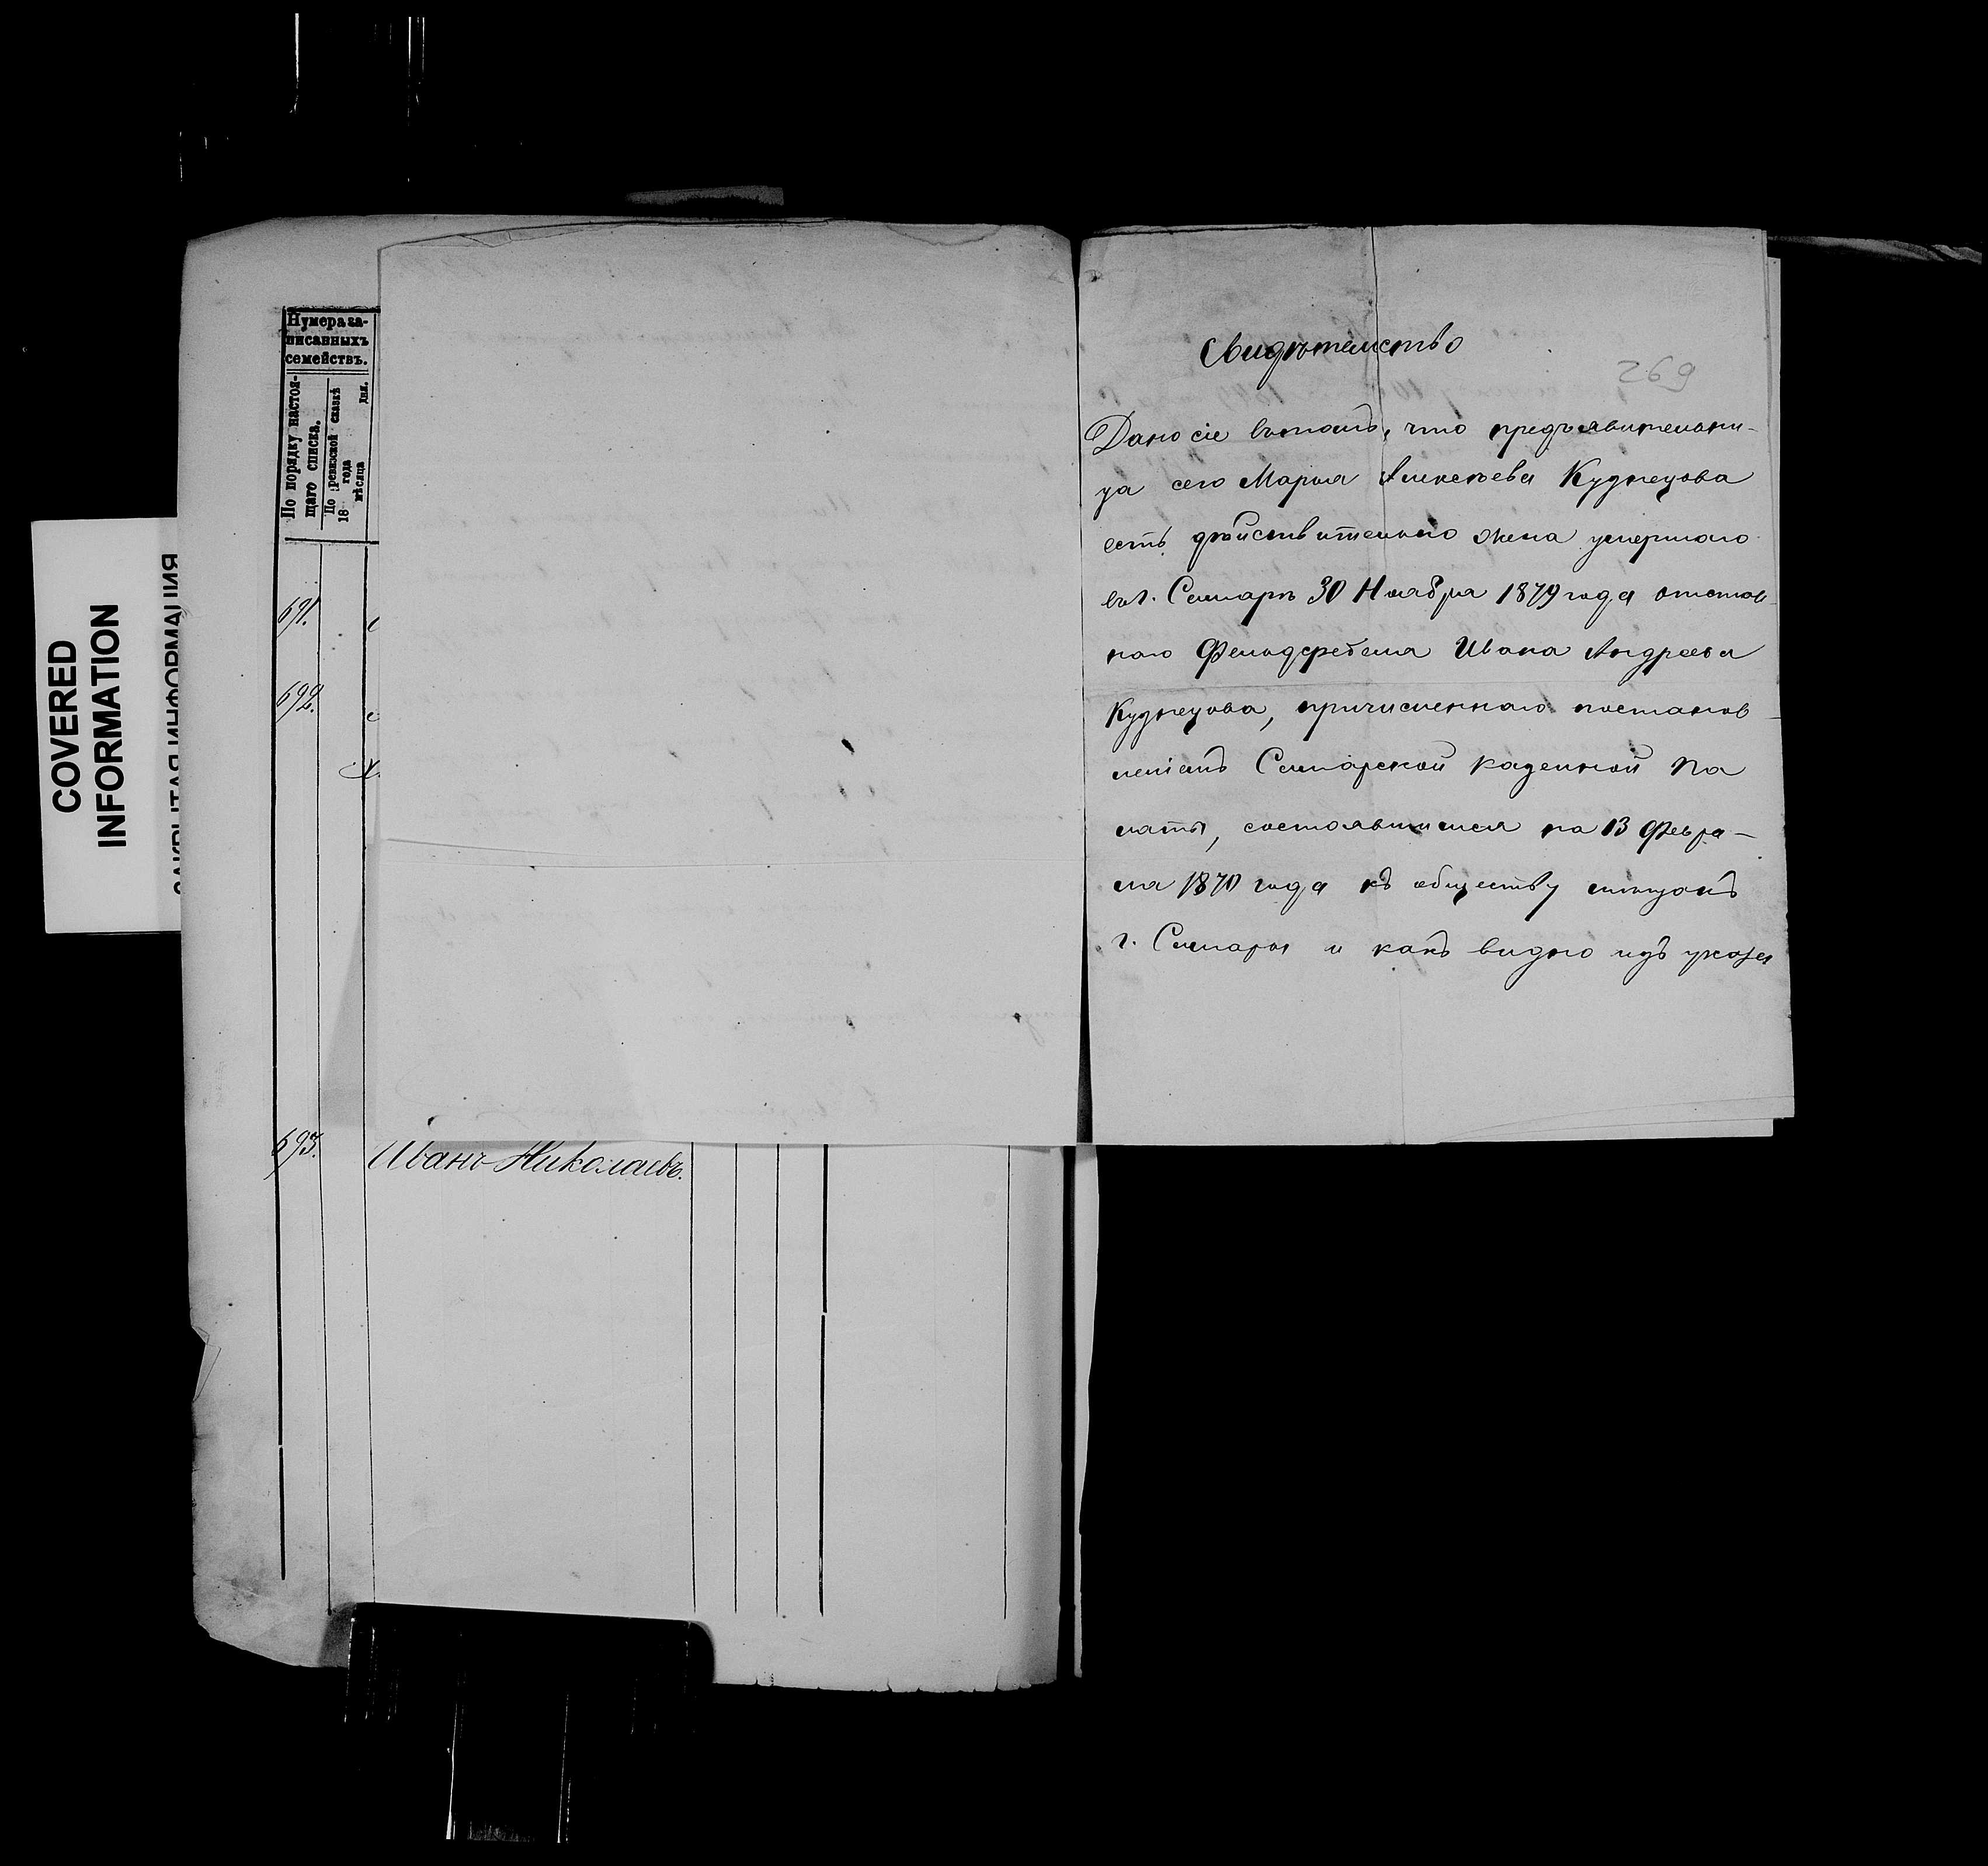 COVERED
INFORMATION
ЗАКРЫТАЯ ИНФОРМАЦИЯ
Нумера за-
писанныхъ
семействъ.
По порядку настоя-
щаго списка.
По ревизской сказкѣ
18 года
мѣсяца дня.
691.
692.
693. Иванъ Николаевъ.
Свидѣтельство
269
Дано сіе въ томъ, что предъявительни-
ца сего Марья Алексѣева Кузнецова
есть дѣйствительно жена умершаго
въ г. Самарѣ 30 Ноября 1879 года отстав-
наго Фельдфебеля Ивана Андреева
Кузнецова, причисленнаго постанов-
леніемъ Самарской казенной Па
латы, состоявшимся на 13 Февра-
ля 1870 года къ обществу мѣщанъ
г. Самары и какъ видно изъ указа